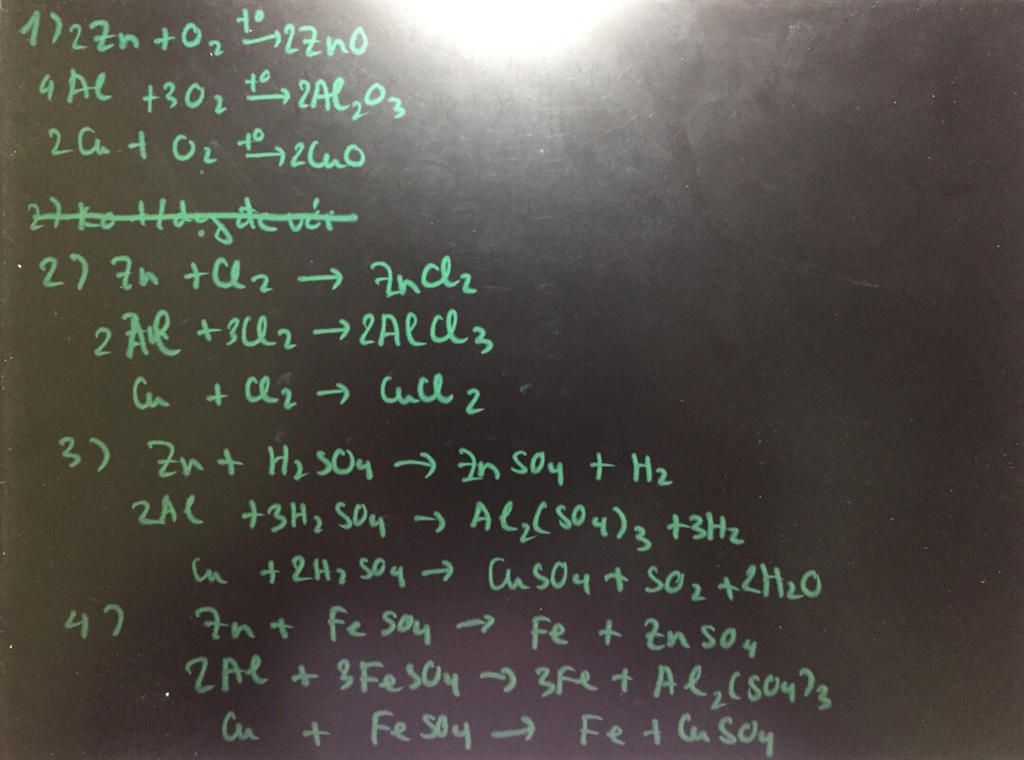 1) 2Zn + O₂ t⁰→ 2ZnO
4Al + 3O₂ t⁰→ 2Al₂O₃
2Cu + O₂ t⁰→ 2CuO
2)
2) Zn + Cl₂ → ZnCl₂
2Al + 3Cl₂ → 2AlCl₃
Cu + Cl₂ → CuCl₂
3) Zn + H₂SO₄ → ZnSO₄ + H₂
2Al + 3H₂SO₄ → Al₂(SO₄)₃ + 3H₂
Cu + 2H₂SO₄ → CuSO₄ + SO₂ + 2H₂O
4) Zn + FeSO₄ → Fe + ZnSO₄
2Al + 3FeSO₄ → 3Fe + Al₂(SO₄)₃
Cu + FeSO₄ → Fe + CuSO₄